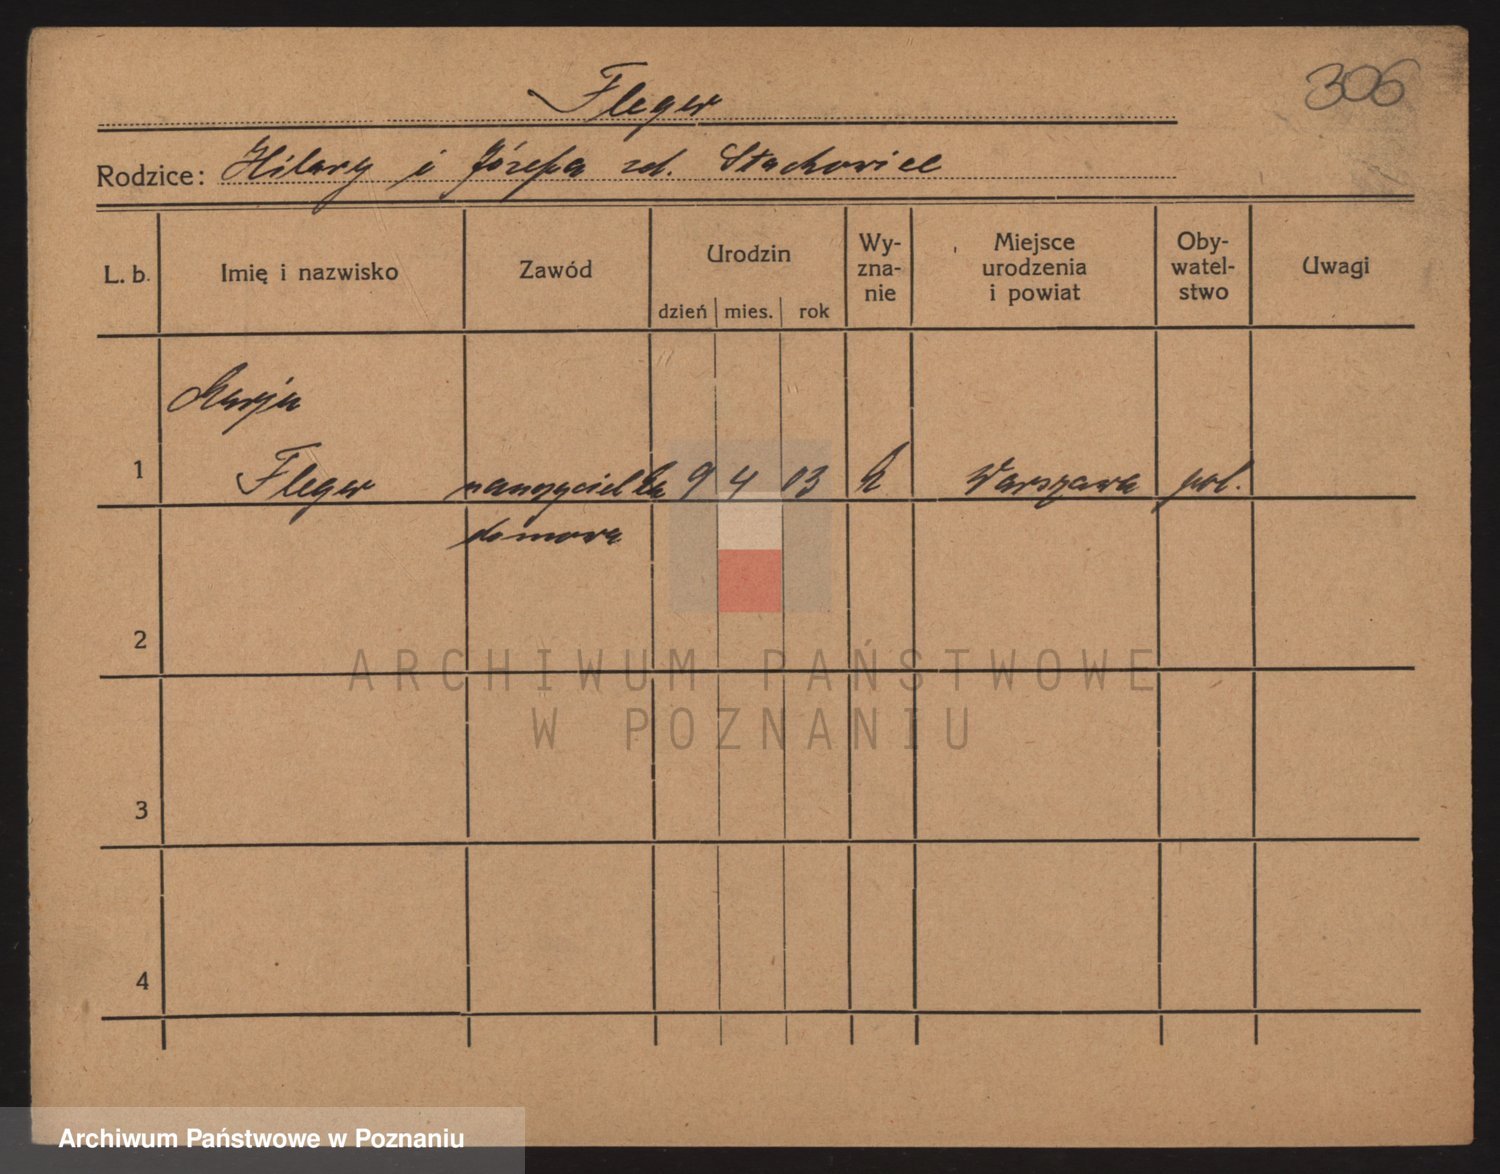 306
Fleger
Rodzice: Hilary i Józefa zd. Stachowicz
L. b. Imię i nazwisko Zawód Urodzin dzień mies. rok Wy-zna-nie Miejsce urodzenia i powiat Oby-watel-stwo Uwagi
Marja
1 Fleger nauczycielka 9 4 03 k Warszawa pol.
domowa
2
ARCHIWUM PAŃSTWOWE
W POZNANIU
3
4
Archiwum Państwowe w Poznaniu